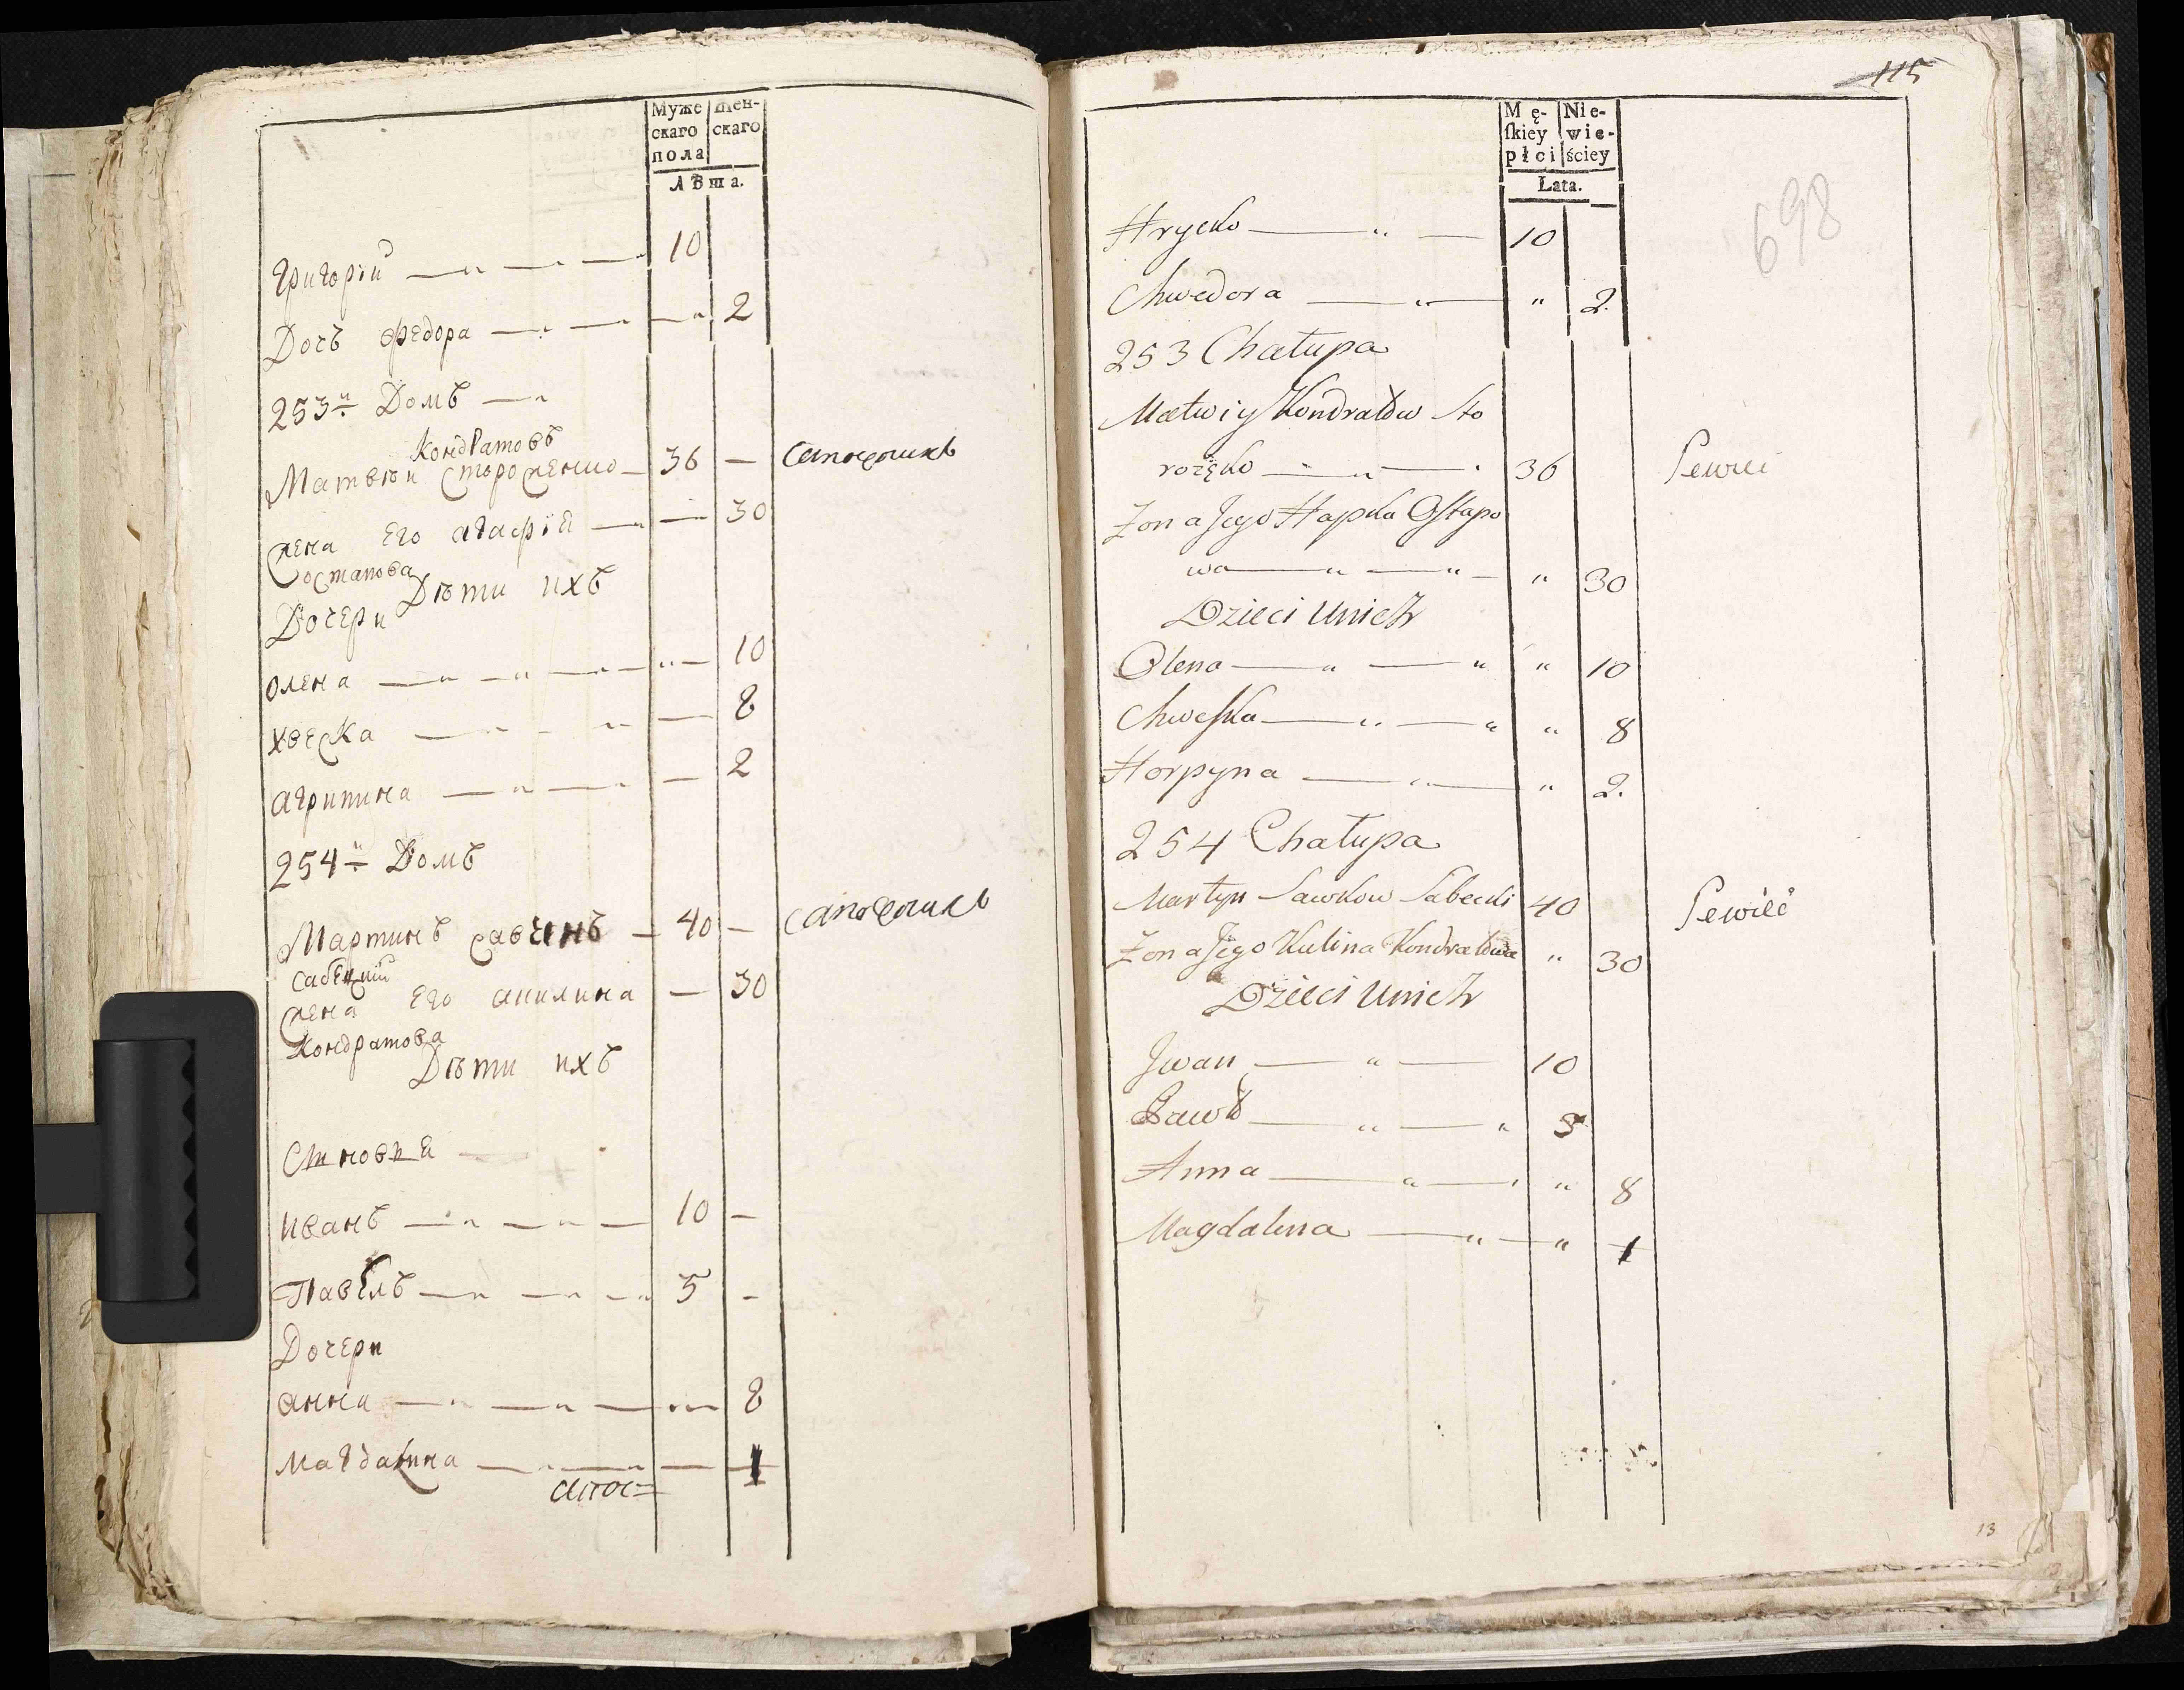 Муже скаго пола
Жен- скаго
Лѣта.
Григорій 10
Дочь Федора 2
253й Домъ
Кондратовъ
Матвѣй Стороженко 36 — сапожникъ
жена Его агафія 30
остапова
Дѣти ихъ
Дочери
олена 10
хвеска 8
агрипина 2
254й Домъ
Мартинъ савчинъ 40 — сапожникъ
сабецкий
жена Его акилина — 30
Кондратова
Дѣти ихъ
Сыновья
иванъ 10 —
Павелъ 5 -
Дочери
анна 8
Магдалина 1
115
698
Mę- skiey płci
Nie- wie- ściey
Łata.
Hrycko " 10
Chwedora " " 2.
253 Chałupa
Matwiy Kondratów Sto
rożęko 36 Szwiec
Żona Jego Hapka Ostapo
wa " " " 30
Dzieci Unich
Olena " " " 10
Chweska " " " 8
Horpyna " " 2.
254 Chałupa
Martyn Sawkow Sabecki 40 Szwieć
Żona Jego Kulina Kondratowa " 30
Dzieci Unich
Jwan " 10
Pawło " " 5
Anna " " 8
Magdalena " " 1
13